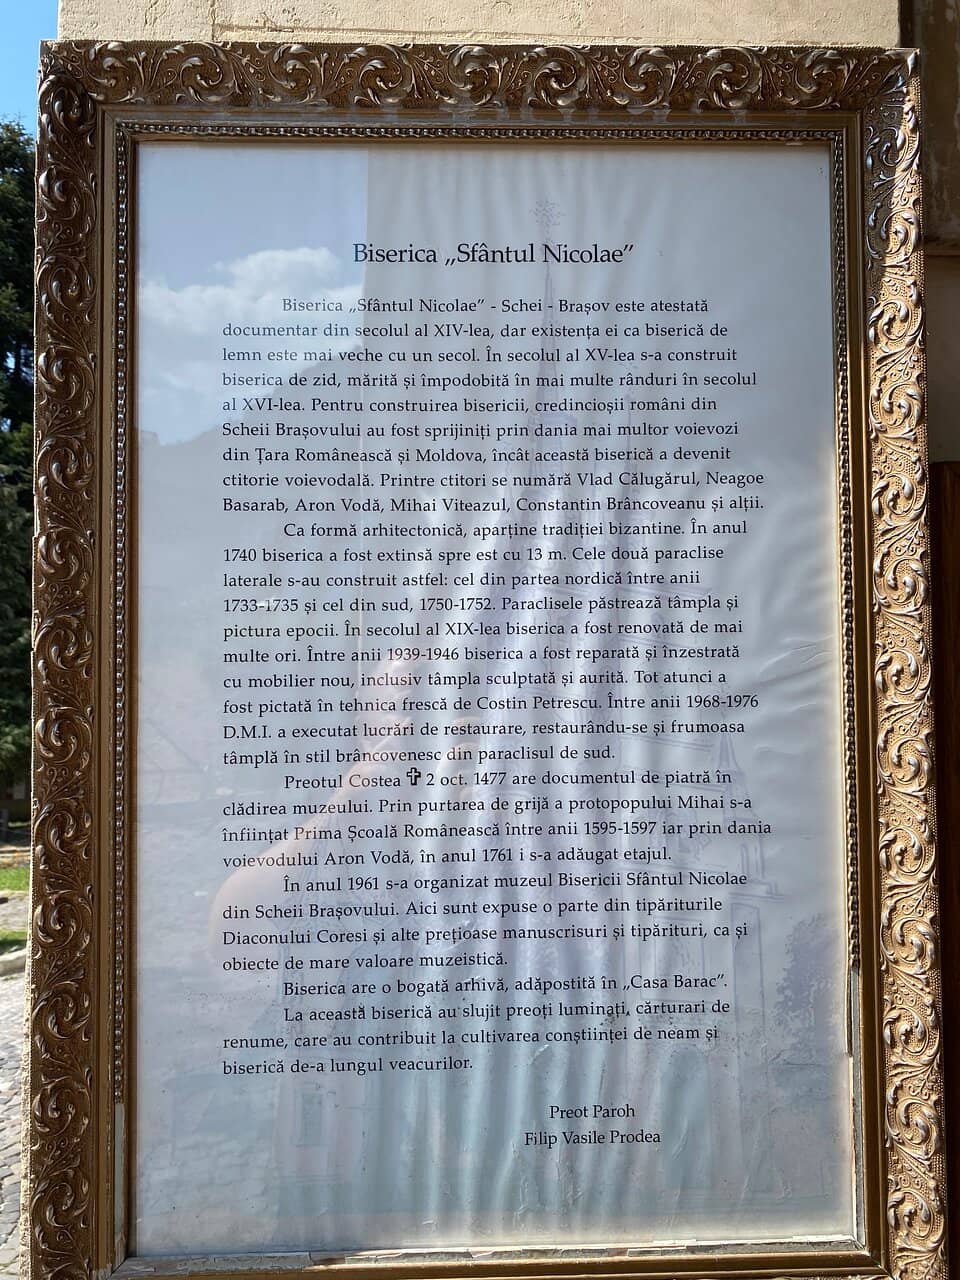 Biserica „Sfântul Nicolae”
Biserica „Sfântul Nicolae” - Schei - Brașov este atestată
documentar din secolul al XIV-lea, dar existența ei ca biserică de
lemn este mai veche cu un secol. În secolul al XV-lea s-a construit
biserica de zid, mărită și împodobită în mai multe rânduri în secolul
al XVI-lea. Pentru construirea bisericii, credincioșii români din
Scheii Brașovului au fost sprijiniți prin dania mai multor voievozi
din Țara Românească și Moldova, încât această biserică a devenit
ctitorie voievodală. Printre ctitori se numără Vlad Călugărul, Neagoe
Basarab, Aron Vodă, Mihai Viteazul, Constantin Brâncoveanu și alții.
Ca formă arhitectonică, aparține tradiției bizantine. În anul
1740 biserica a fost extinsă spre est cu 13 m. Cele două paraclise
laterale s-au construit astfel: cel din partea nordică între anii
1733-1735 și cel din sud, 1750-1752. Paraclisele păstrează tâmpla și
pictura epocii. În secolul al XIX-lea biserica a fost renovată de mai
multe ori. Între anii 1939-1946 biserica a fost reparată și înzestrată
cu mobilier nou, inclusiv tâmpla sculptată și aurită. Tot atunci a
fost pictată în tehnica frescă de Costin Petrescu. Între anii 1968-1976
D.M.I. a executat lucrări de restaurare, restaurându-se și frumoasa
tâmplă în stil brâncovenesc din paraclisul de sud.
Preotul Costea ✞ 2 oct. 1477 are documentul de piatră în
clădirea muzeului. Prin purtarea de grijă a protopopului Mihai s-a
înființat Prima Școală Românească între anii 1595-1597 iar prin dania
voievodului Aron Vodă, în anul 1761 i s-a adăugat etajul.
În anul 1961 s-a organizat muzeul Bisericii Sfântul Nicolae
din Scheii Brașovului. Aici sunt expuse o parte din tipăriturile
Diaconului Coresi și alte prețioase manuscrisuri și tipărituri, ca și
obiecte de mare valoare muzeistică.
Biserica are o bogată arhivă, adăpostită în „Casa Barac”.
La această biserică au slujit preoți luminați, cărturari de
renume, care au contribuit la cultivarea conștiinței de neam și
biserică de-a lungul veacurilor.
Preot Paroh
Filip Vasile Prodea